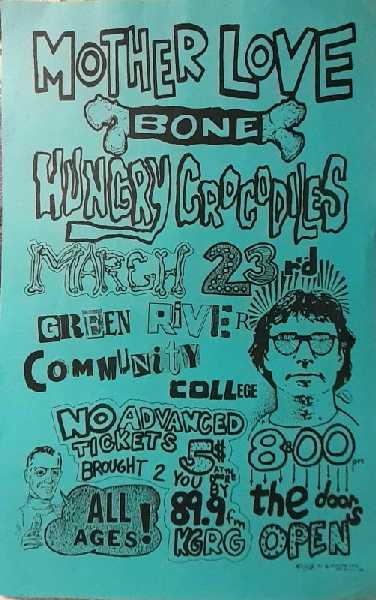 MOTHER LOVE
BONE
HUNGRY CROCODILES
MARCH 23rd
GREEN RiVER
COMMUNiTY
COLLEGE
NO ADVANCED
TICKETS
BROUGHT 2
YOU
BY
89.9 fm
KGRG
5$
AT THE
ALL
AGES!
8:00 pm
the doors
OPEN